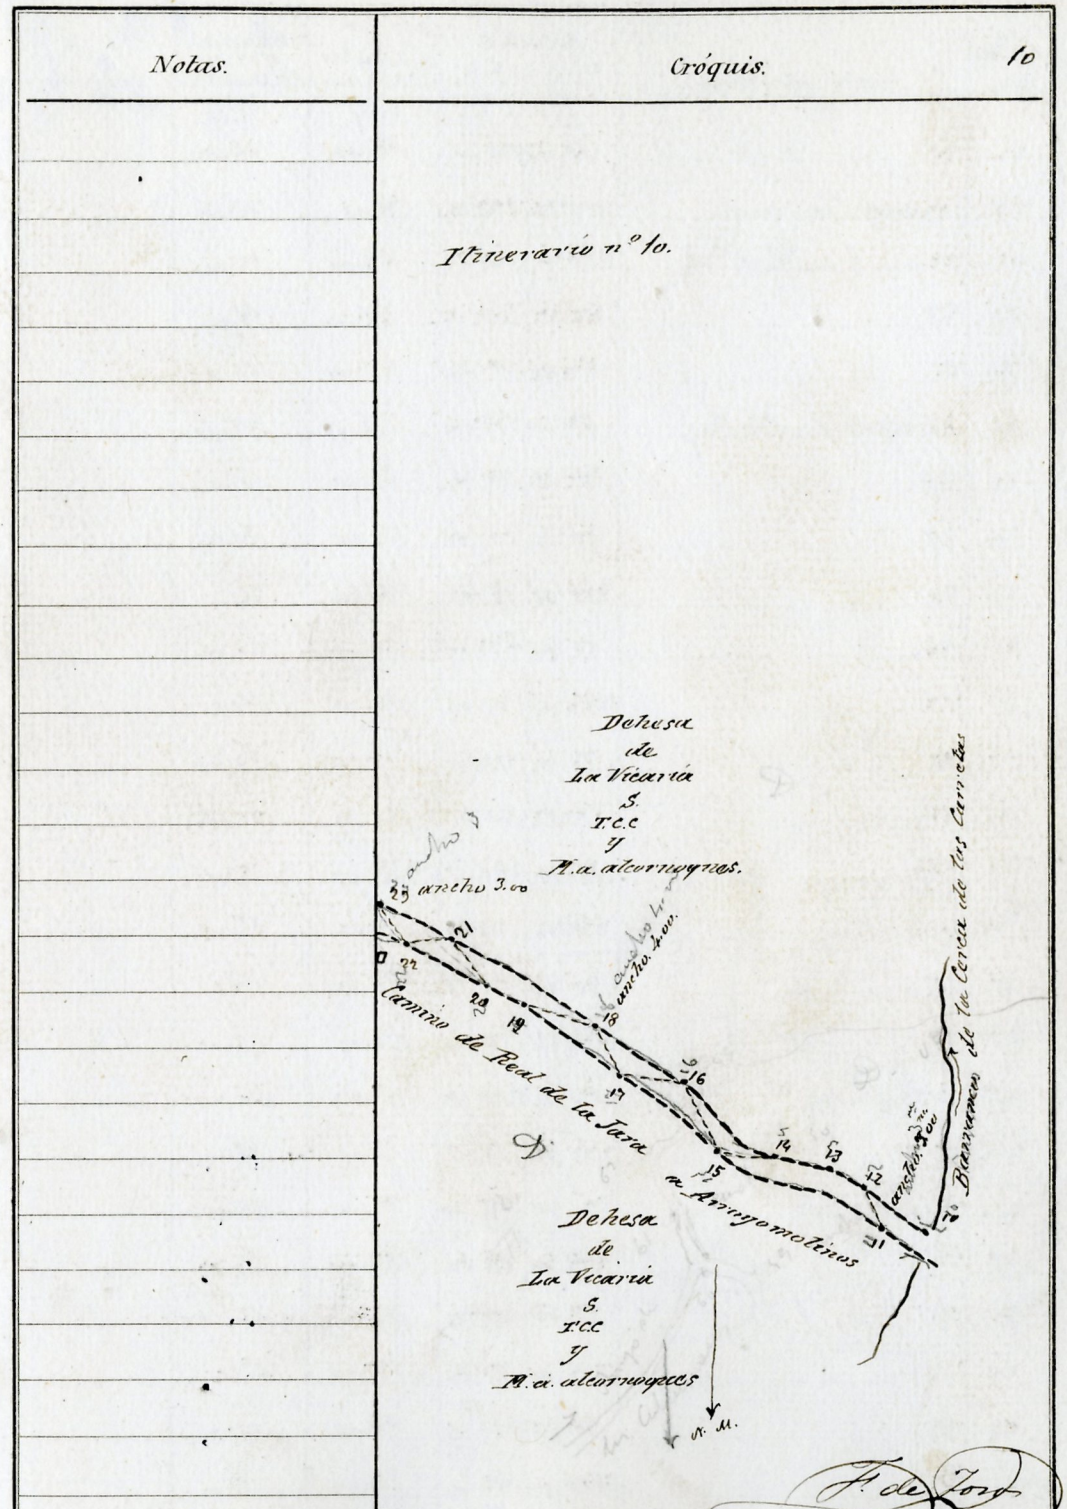 Notas.
Cróquis.
10
Itinerario nº 10.
Dehesa
de
La Vicaria
S.
T.C.C
y
M.a. alcornoques.
ancho
23 ancho 3.00
21
22
20
19
18
ancho. 4.00.
17
16
15
14
13
12
11
10
Camino de Real de la Jara
a Arroyomolinos
Barranco de la Cerca de las Carretas
Dehesa
de
La Vicaria
S.
T.C.C
y
M.a. alcornoques
N. M.
F. de Toro